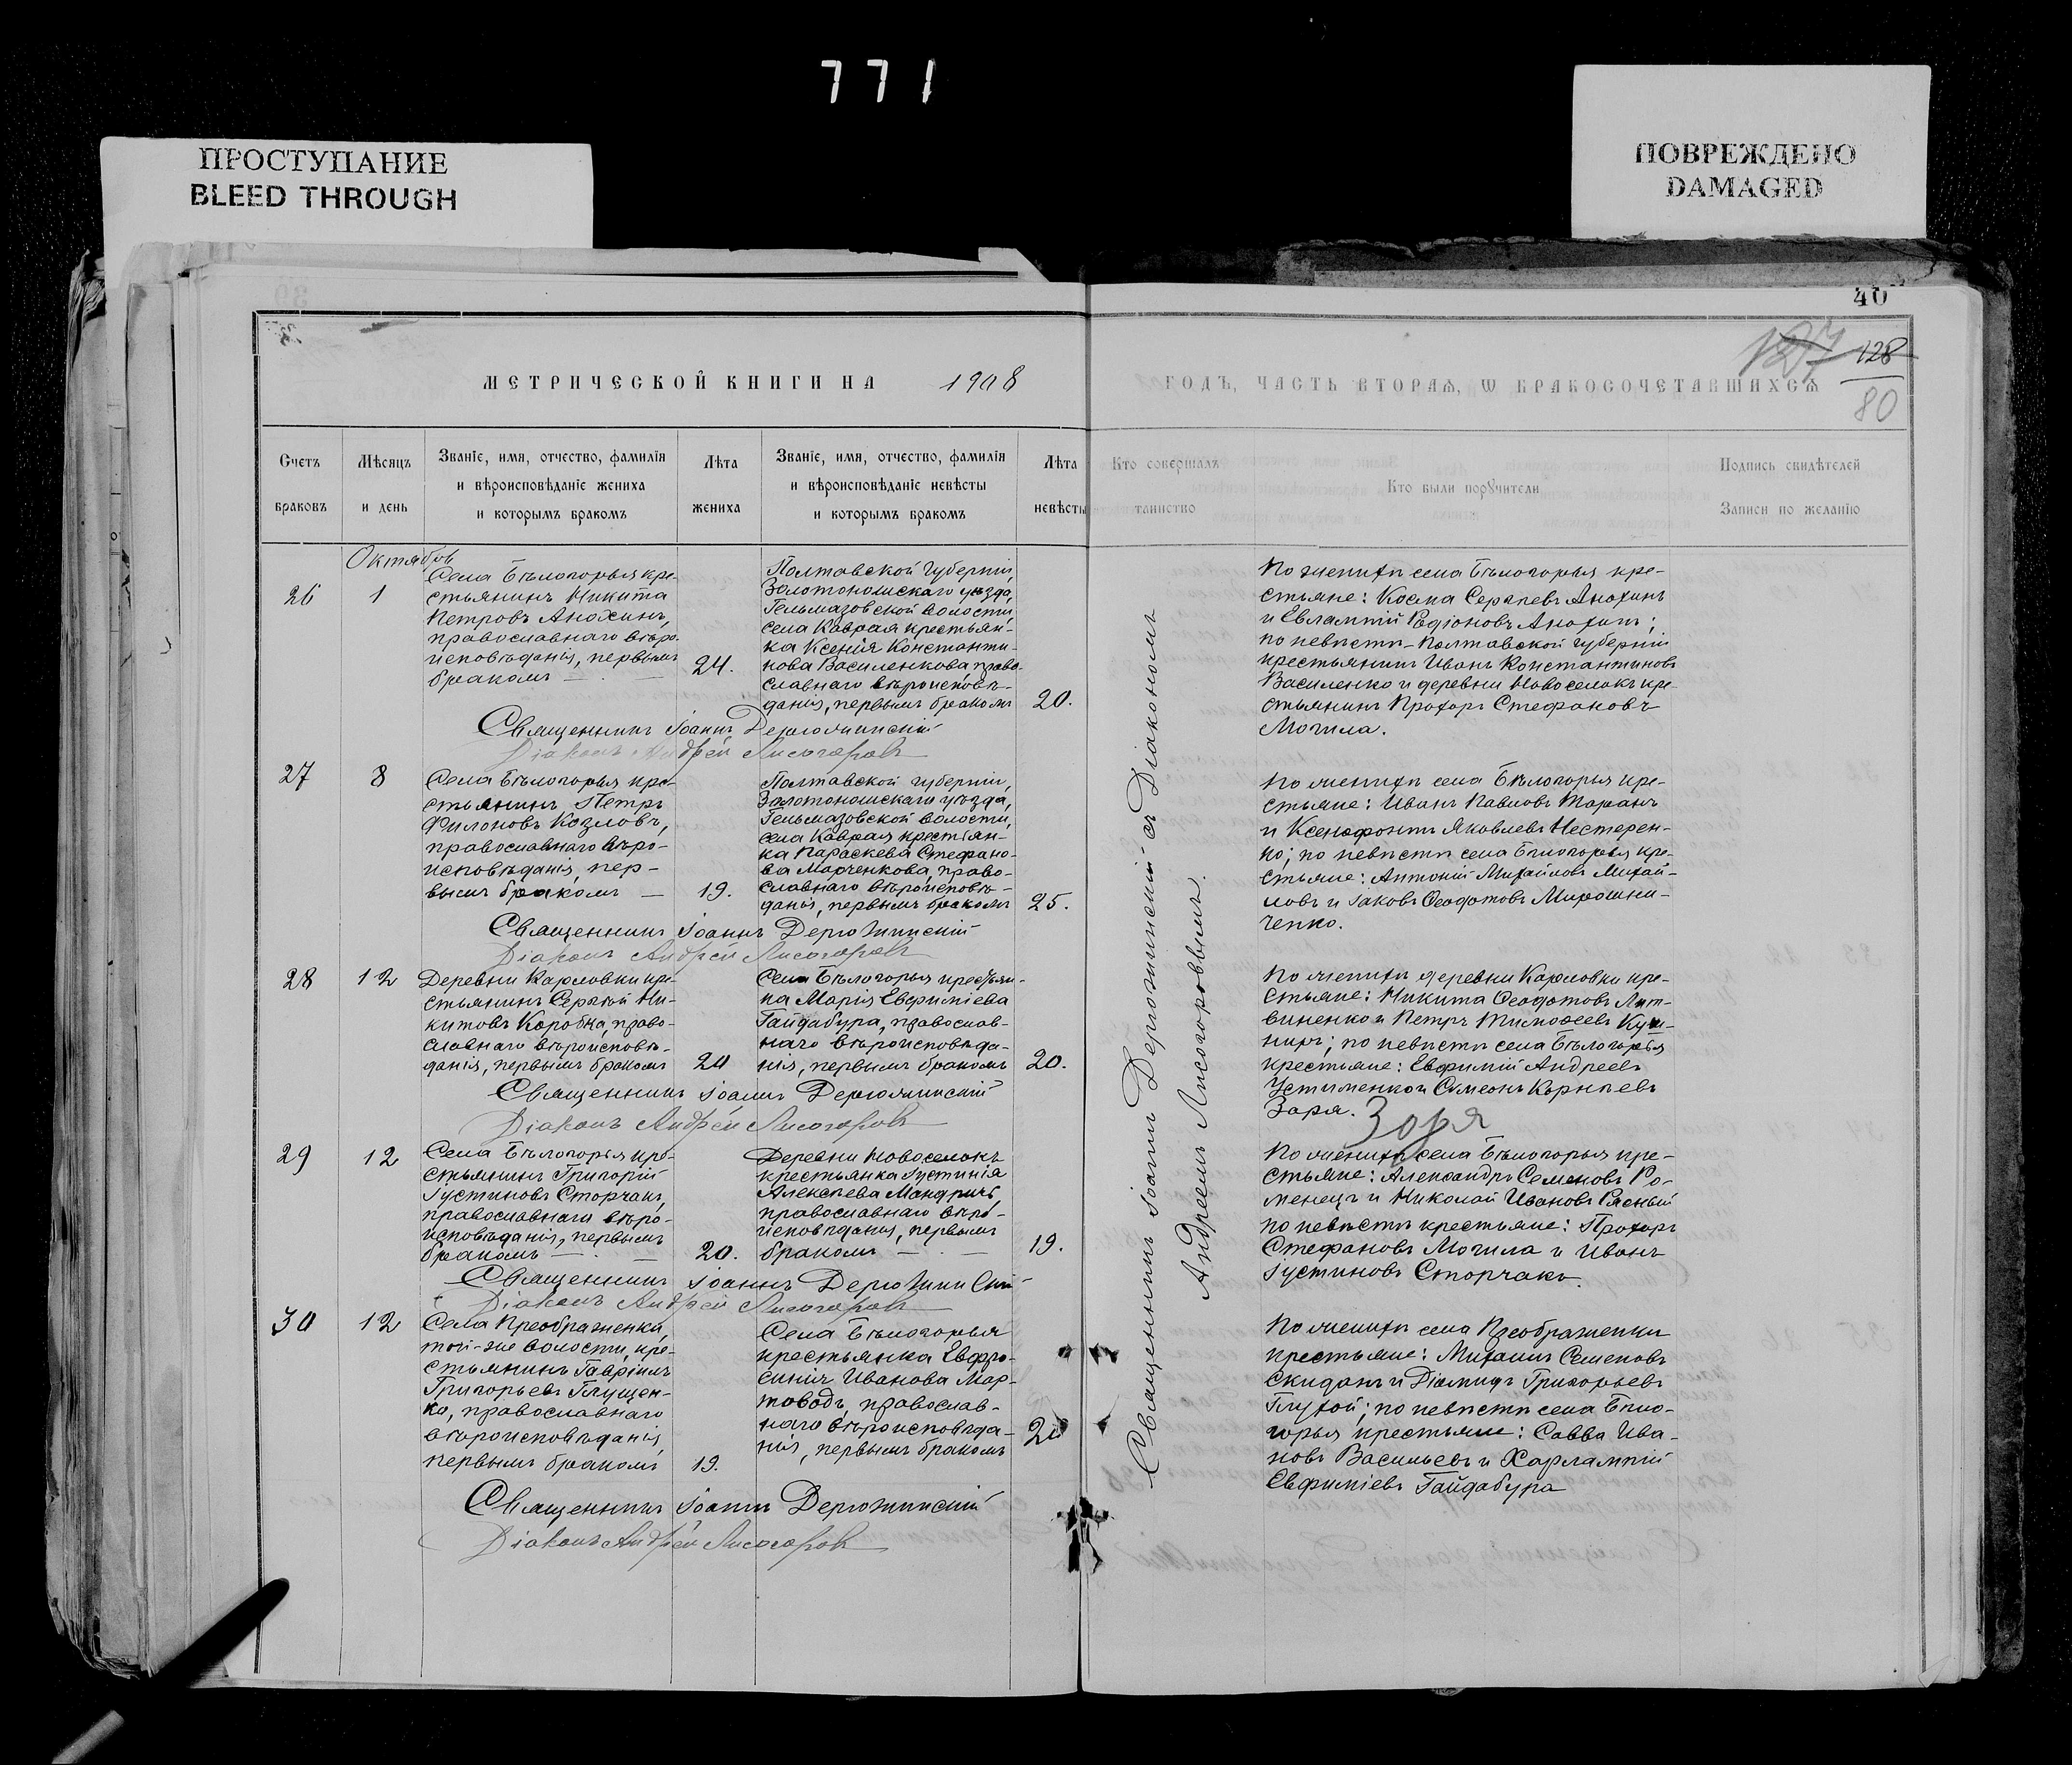 771
ПРОСТУПАНИЕ
BLEED THROUGH
ПОВРЕЖДЕНО
DAMAGED
40
128
80
МЕТРИЧЕСКОЙ КНИГИ НА 1908 ГОДЪ, ЧАСТЬ ВТОРАѦ, Ѡ БРАКОСОЧЕТАВШИХСѦ
Счетъ браковъ
Мѣсяцъ и день
Званіе, имя, отчество, фамилія
и вѣроисповѣданіе жениха
и которымъ бракомъ
Лѣта жениха
Званіе, имя, отчество, фамилія
и вѣроисповѣданіе невѣсты
и которымъ бракомъ
Лѣта невѣсты
Кто совершалъ таинство
Кто были поручители
Подпись свидѣтелей
Записи по желанію
Октябрь
26
1
Села Бѣлогорья кре-
стьянинъ Никита
Петровъ Анохинъ,
православнаго вѣро-
исповѣданія, первымъ
бракомъ —
24.
Полтавской губерніи,
Золотоношскаго уѣзда,
Гельмязовской волости,
села Каврая крестьян-
ка Ксенія Константи-
нова Василенкова, право-
славнаго вѣроисповѣ-
данія, первымъ бракомъ
20.
По женихѣ села Бѣлогорья кре-
стьяне: Косма Сергѣевъ Анохинъ
и Евлампій Родіоновъ Анохинъ;
по невѣстѣ - Полтавской губерніи
крестьянинъ Иванъ Константиновъ
Василенко и деревни Новоселокъ кре-
стьянинъ Прохоръ Стефановъ
Могила.
Священникъ Іоаннъ Держжинскій
Діаконъ Андрей Лисогоровъ
27
8
Села Бѣлогорья кре-
стьянинъ Петръ
Филоновъ Козловъ,
православнаго вѣро-
исповѣданія, пер-
вымъ бракомъ —
19.
Полтавской губерніи,
Золотоношскаго уѣзда,
Гельмязовской волости,
села Каврая крестьян-
ка Параскева Стефано-
ва Марченкова, право-
славнаго вѣроисповѣ-
данія, первымъ бракомъ
25.
По женихѣ села Бѣлогорья кре-
стьяне: Иванъ Павловъ Таранъ
и Ксенофонтъ Яковлевъ Нестерен-
ко; по невѣстѣ села Бѣлогорья кре-
стьяне: Антоній Михайловъ Михай-
ловъ и Іаковъ Ѳеодотовъ Мирошни-
ченко.
Священникъ Іоаннъ
Діаконъ Андрей Лисогоровъ
28
12
Деревни Карловки кре-
стьянинъ Сергѣй Ни-
китовъ Коробка, право-
славнаго вѣроисповѣ-
данія, первымъ бракомъ
20
Села Бѣлогорья крестьян-
ка Марія Евфиміева
Гайдабура, православ-
наго вѣроисповѣда-
нія, первымъ бракомъ
20.
По женихѣ деревни Карловки кре-
стьяне: Никита Ѳеодотовъ Лит-
виненко и Петръ Тимоѳеевъ Куш-
ниръ; по невѣстѣ села Бѣлогорья
крестьяне: Евфимій Андреевъ
Устименко и Симеонъ Корнѣевъ
Заря. Зоря
Священникъ Іоаннъ
Діаконъ Андрей Лисогоровъ
29
12
Села Бѣлогорья кре-
стьянинъ Григорій
Іустиновъ Сторчакъ,
православнаго вѣро-
исповѣданія, первымъ
бракомъ —
20.
Деревни Новоселокъ
крестьянка Іустинія
Алексѣева Мандричъ,
православнаго вѣро-
исповѣданія, первымъ
бракомъ —
19.
По женихѣ села Бѣлогорья кре-
стьяне: Александръ Семеновъ Ро-
менецъ и Николай Ивановъ Рясный
по невѣстѣ крестьяне: Прохоръ
Стефановъ Могила и Иванъ
Іустиновъ Сторчакъ.
Священникъ Іоаннъ
Діаконъ Андрей Лисогоровъ
30
12
Села Преображенки,
той-же волости, кре-
стьянинъ Гавріилъ
Григорьевъ Глущен-
ко, православнаго
вѣроисповѣданія,
первымъ бракомъ
19.
Села Бѣлогорья
крестьянка Евфро-
синія Иванова Мар-
товодъ, православ-
наго вѣроисповѣда-
нія, первымъ бракомъ
20
По женихѣ села Преображенки
крестьяне: Михаилъ Семеновъ
Скиданъ и Діомидъ Григорьевъ
Глухой; по невѣстѣ села Бѣло-
горья крестьяне: Савва Ива-
новъ Васильевъ и Харлампій
Евфиміевъ Гайдабура
Священникъ Іоаннъ
Діаконъ Андрей Лисогоровъ
Священникъ Іоаннъ съ Діакономъ
Андреемъ Лисогоровымъ.